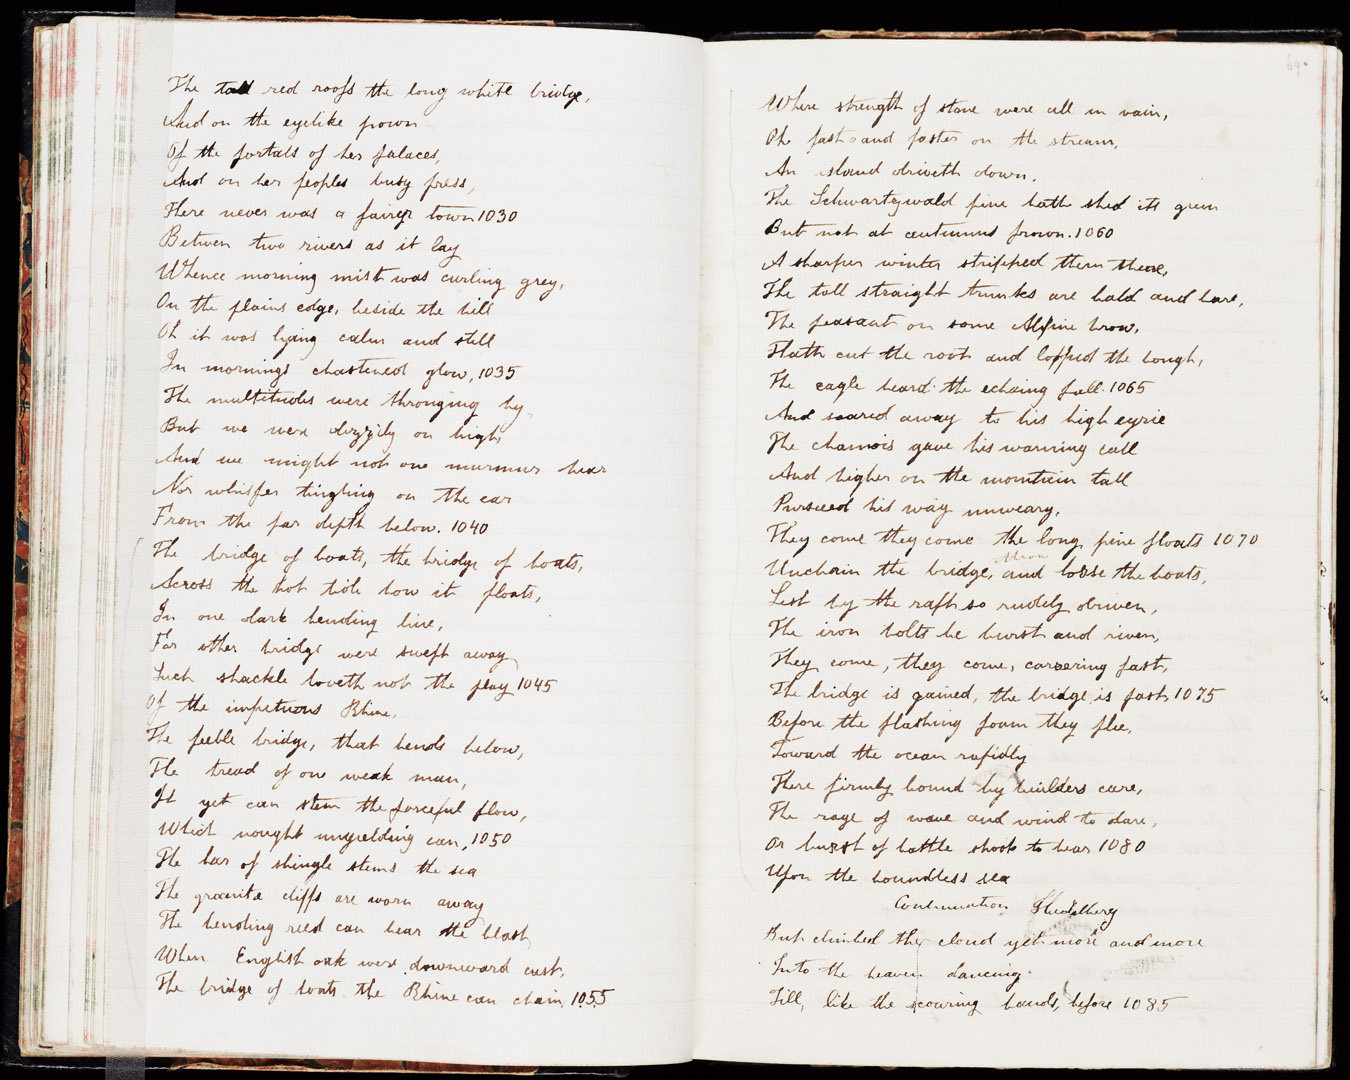 The tall red roofs the long white bridge,
And on the eyelike frown
Of the portals of her palaces,
And on her peoples busy press,
There never was a fairer town 1030
Between two rivers as it lay
Whence morning mist was curling grey,
On the plains edge, beside the hill
Oh it was lying calm and still
In mornings chastened glow, 1035
The multitudes were thronging by
But we were dizzily on high
And we might not one murmur hear
Nor whisper tingling on the ear
From the far depth below. 1040
The bridge of boats, the bridge of boats,
Across the hot tide how it floats,
In one dark bending line,
For other bridge were swept away
Such shackle loveth not the play 1045
Of the impetuous Rhine,
The feeble bridge, that bends below,
The tread of one weak man,
It yet can stem the forceful flow,
Which nought unyielding can, 1050
The bar of shingle stems the sea
The granite cliffs are worn away
The bending reed can bear the blast,
When English oak were downward cast,
The bridge of boats the Rhine can chain, 1055
69.
Where strength of stone were all in vain,
Oh fast and faster on the stream,
An island driveth down,
The Schwartzwald pine hath shed its green
But not at autumns frown. 1060
A sharper winter stripped them there,
The tall straight trunks are bald and bare,
The peasant on some Alpine brow,
Hath cut the root and lopped the bough,
The eagle heard the echoing fall 1065
And soared away to his high eyrie
The chamois gave his warning call
And higher on the mountain tall
Pursued his way unweary,
They come they come the long pine floats 1070
Unchain the bridge, and loose the boats,
Lest by the raft so rudely driven,
The iron bolts be burst and riven,
They come, they come, careering fast,
The bridge is gained, the bridge is past, 1075
Before the flashing foam they flee,
Toward the ocean rapidly
There firmly bound by builders care,
The rage of wave and wind to dare,
Or burst of battle shock to bear 1080
Upon the boundless sea
Continuation Heidelberg
But climbed the cloud yet more and more
Into the heaven dancing
Till, like the scouring bands, before 1085